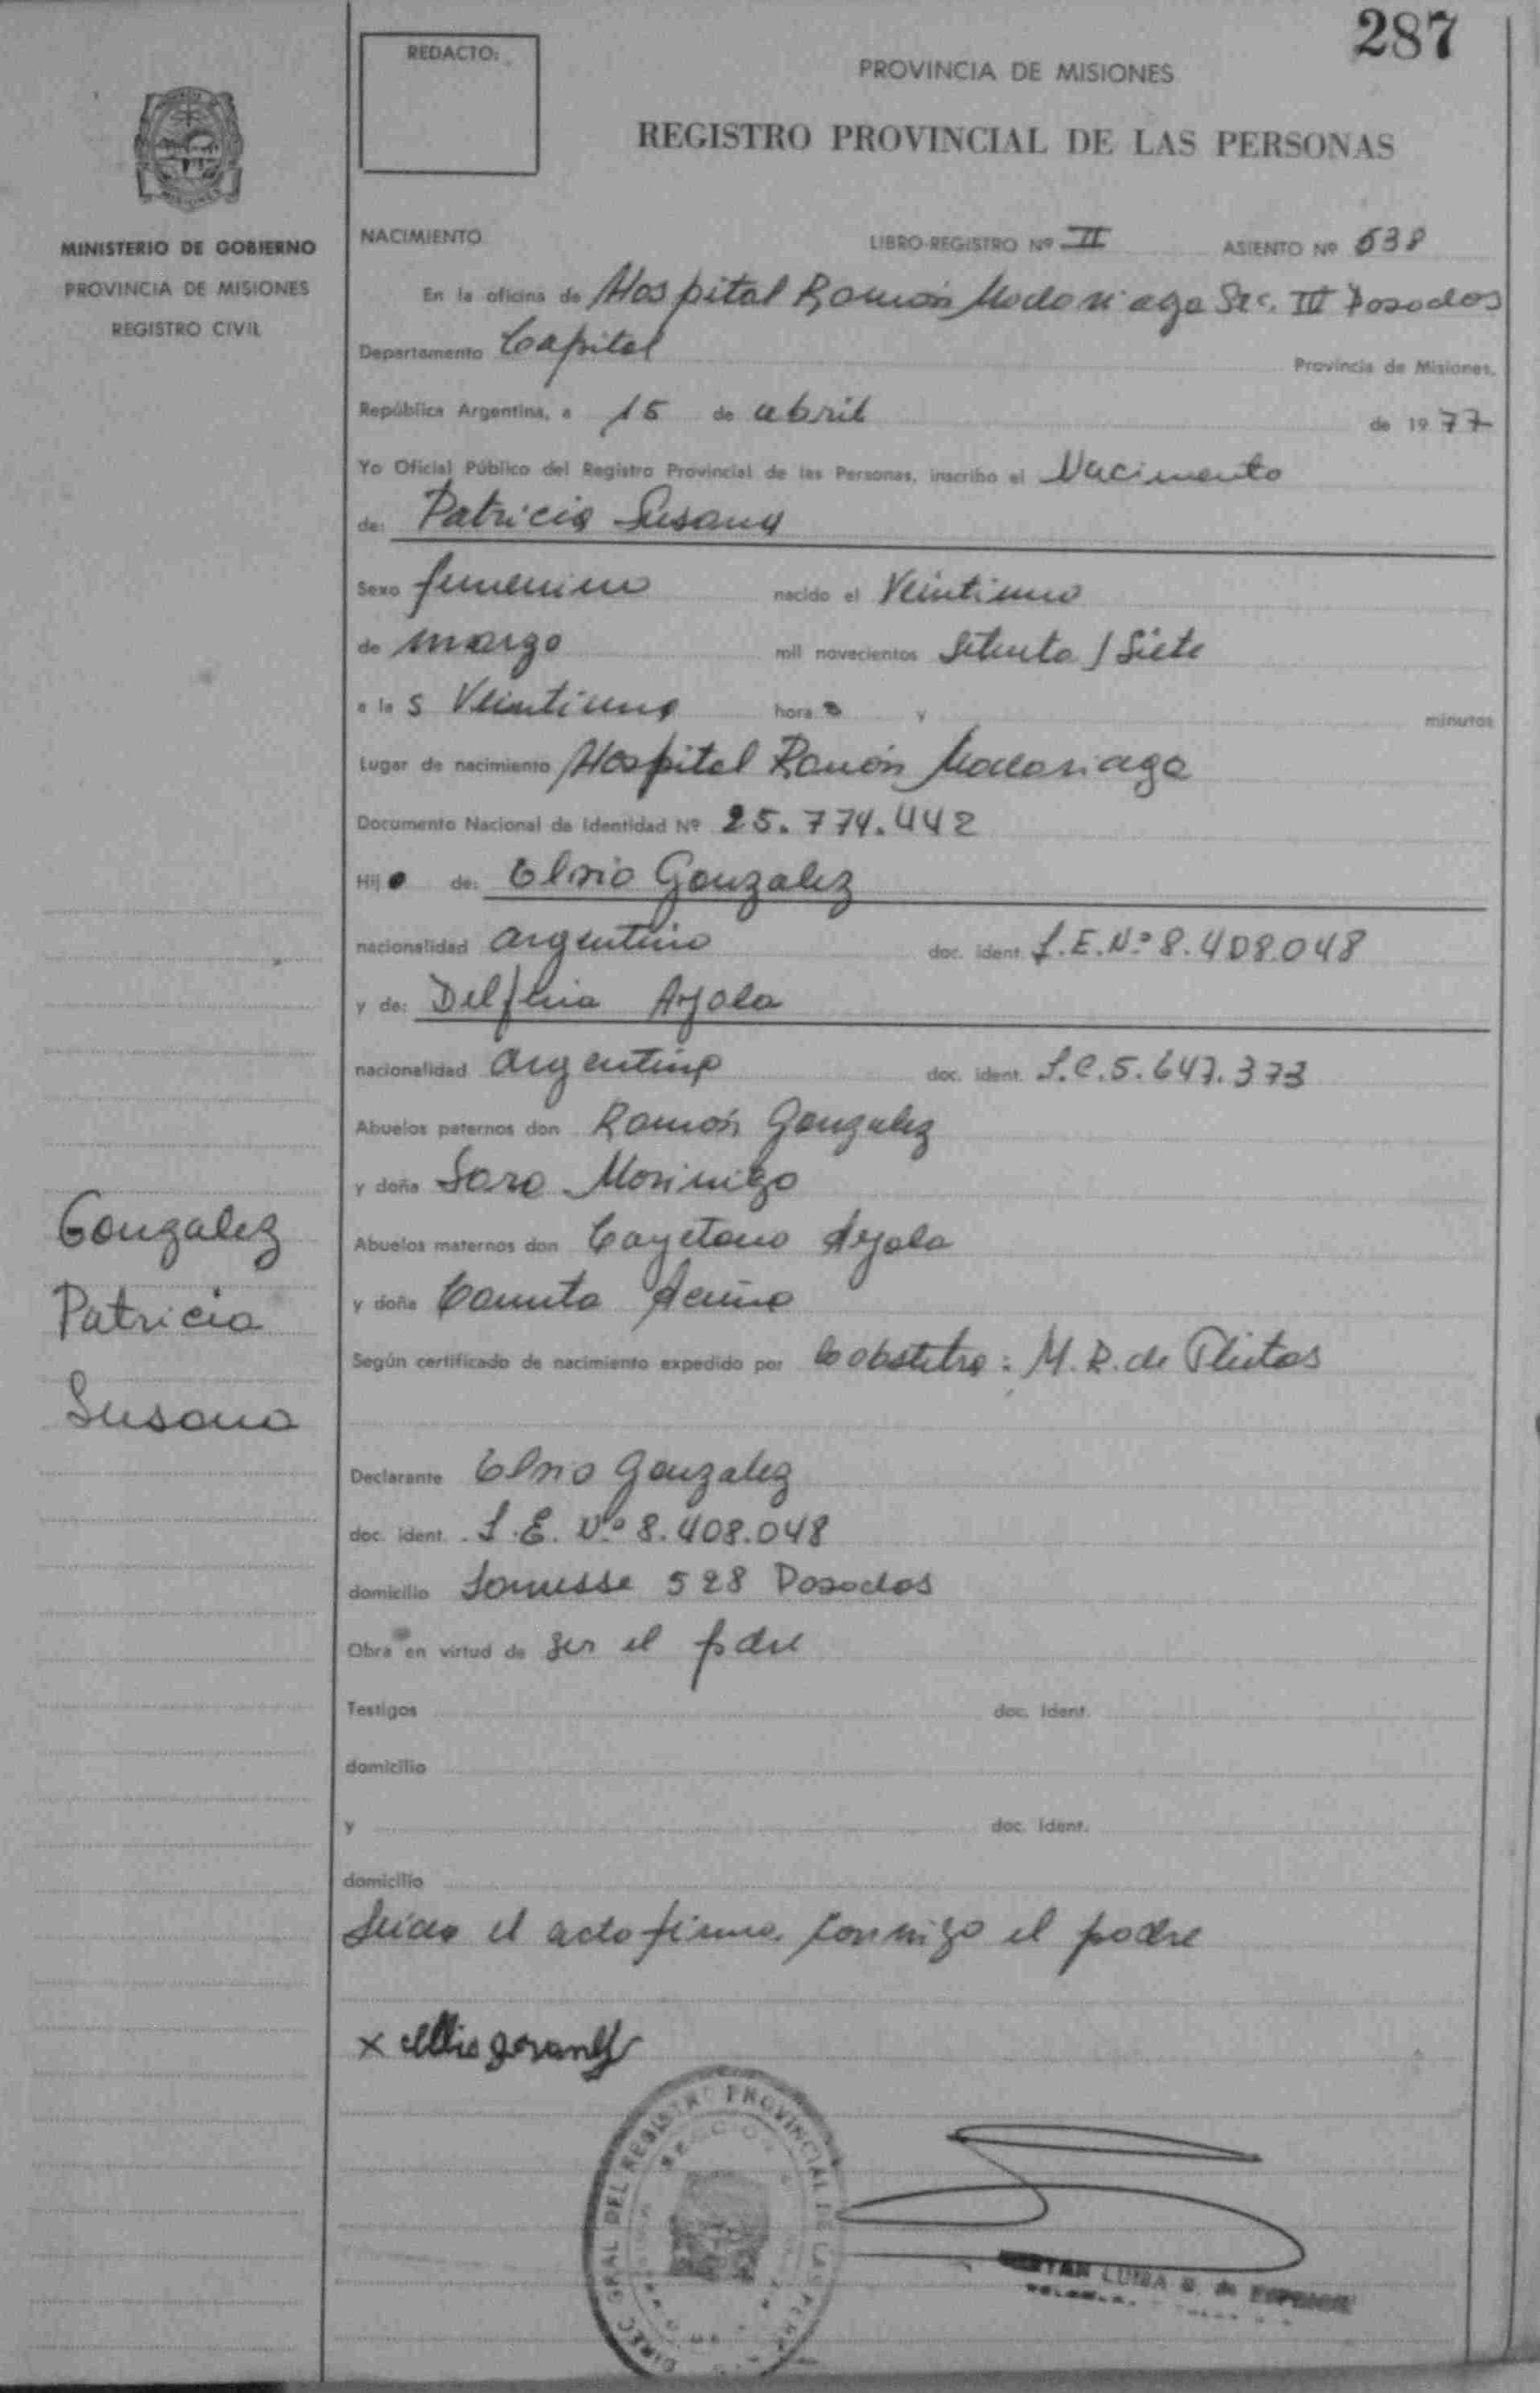 287
REDACTO:
PROVINCIA DE MISIONES
REGISTRO PROVINCIAL DE LAS PERSONAS
MINISTERIO DE GOBIERNO
PROVINCIA DE MISIONES
REGISTRO CIVIL
NACIMIENTO LIBRO-REGISTRO Nº II ASIENTO Nº 638
En la oficina de Hospital Ramón Madariaga Sec. III Posadas
Departamento Capital Provincia de Misiones,
República Argentina, a 15 de abril de 1977
Yo Oficial Público del Registro Provincial de las Personas, inscribo el Nacimiento
de: Patricia Susana
Sexo femenino nacido el Veintiuno
de marzo mil novecientos Setenta / Siete
a las Veintiuna hora s y minutos
Lugar de nacimiento Hospital Ramón Madariaga
Documento Nacional de Identidad Nº 25.774.442
Hija de: Elvio Gonzalez
nacionalidad argentino doc. ident. L.E.Nº 8.408.048
y de: Delfina Ayala
nacionalidad argentina doc. ident. L.C.5.647.373
Abuelos paternos don Ramón Gonzalez
y doña Sara Morinigo
Abuelos maternos don Cayetano Ayala
y doña Canuta Acuña
Según certificado de nacimiento expedido por la obstetra: M.R. de
Declarante Elvio Gonzalez
doc. ident. L.E. Nº 8.408.048
domicilio 528 Posadas
Obra en virtud de ser el pdre
Testigos doc. ident.
domicilio
y doc. ident.
domicilio
el acto firma conmigo el padre
Gonzalez
Patricia
Susana
x
DIREC. GRAL DEL REGISTRO PROVINCIAL DE LAS
LUISA